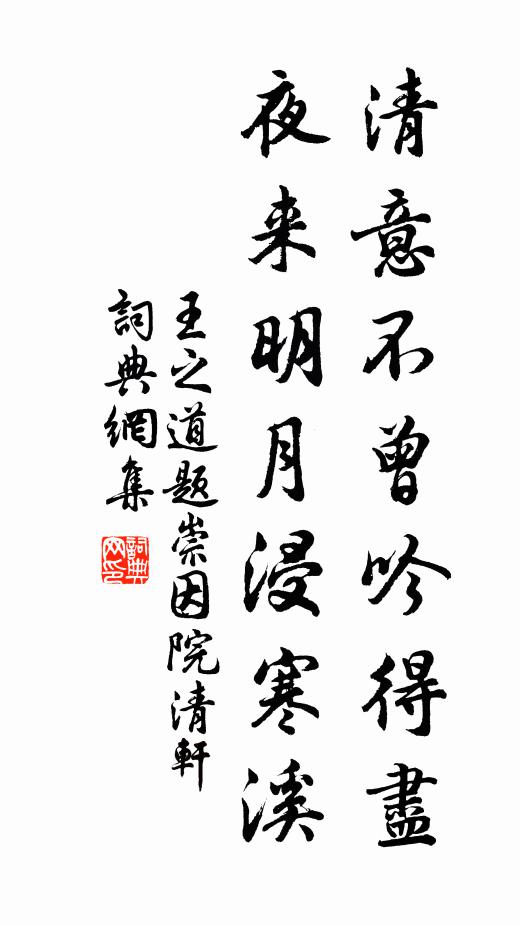 清意不曾吟得盡
夜来明月浸寒溪
王之道題崇因院清軒
詞典網集
詞典
网印